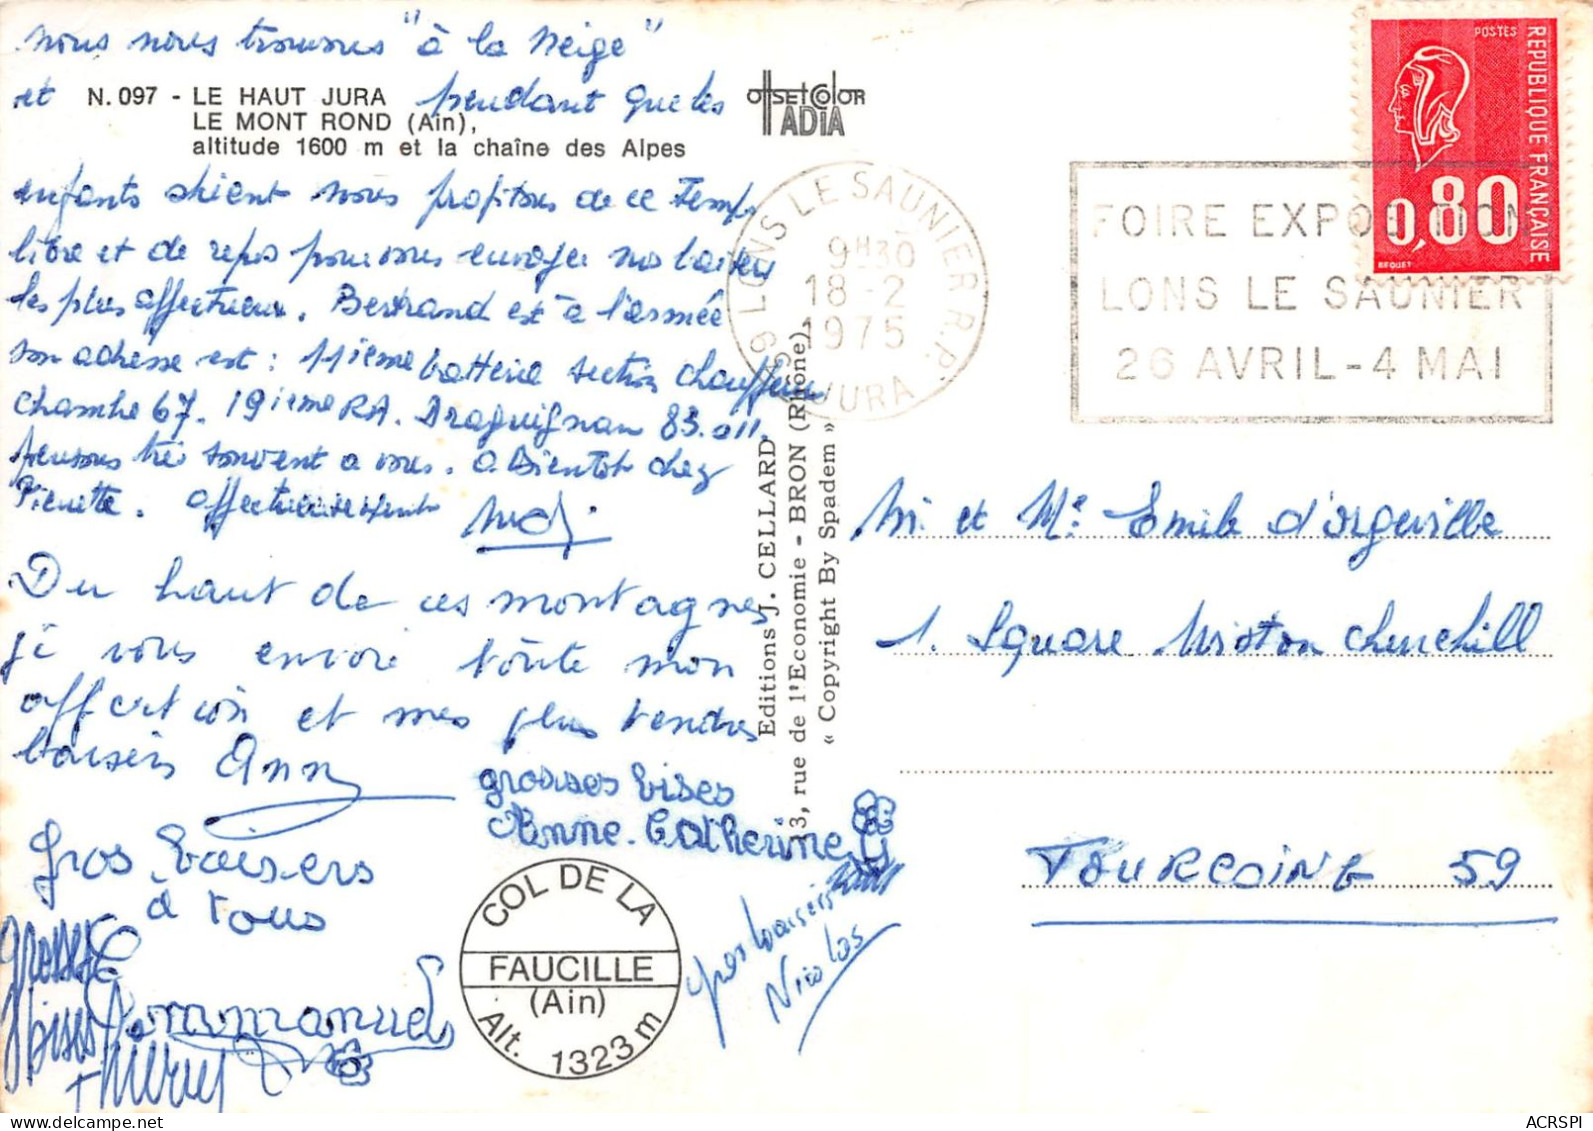 nous nous trouvons "à la neige"
et pendant que les
N. 097 - LE HAUT JURA
LE MONT ROND (Ain),
altitude 1600 m et la chaîne des Alpes
enfants skient nous profitons de ce temps
libre et de repos pour vous envoyer nos baisers
les plus affectueux. Bertrand est à l'armée
son adresse est : 11ième batterie section chauffeur
chambre 67. 19ième RA. Draguignan 83.
pensons très souvent a vous. a Bientot chez
Pierrette. affectueusement
Du haut de ces montagnes
je vous envoie toute mon
affection et mes plus tendres
baisers Ann
grosses bises
Anne-Catherine
gros baisers
a tous
grosses
bises
Emmanuel
Thierry
gros baisers
Nicolas
COL DE LA
FAUCILLE
(Ain)
Alt. 1323 m
offset color
ADIA
Editions J. CELLARD
3, rue de l'Economie - BRON (Rhône)
« Copyright By Spadem »
39 LONS LE SAUNIER R.P.
9H30
18-2
1975
JURA
FOIRE EXPOSITION
LONS LE SAUNIER
26 AVRIL-4 MAI
POSTES
REPUBLIQUE FRANÇAISE
0,80
BEQUET
M. et Me Emile d'orgeville
1. Square Winston Churchill
TOURCOING 59
delcampe.net
ACRSPI